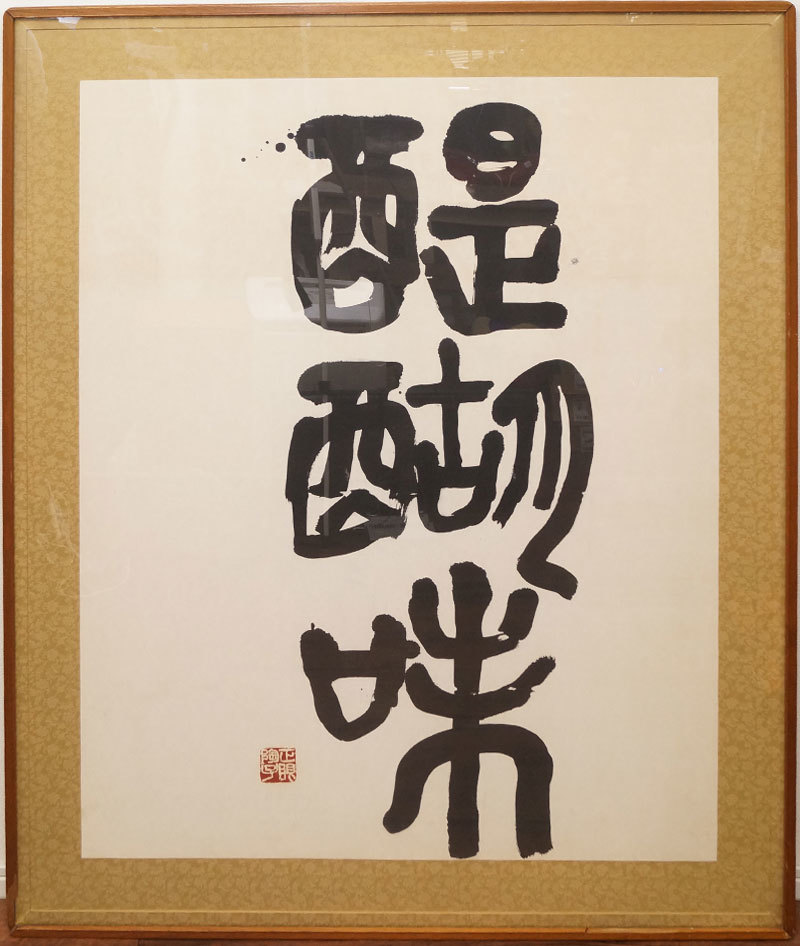 醍醐味